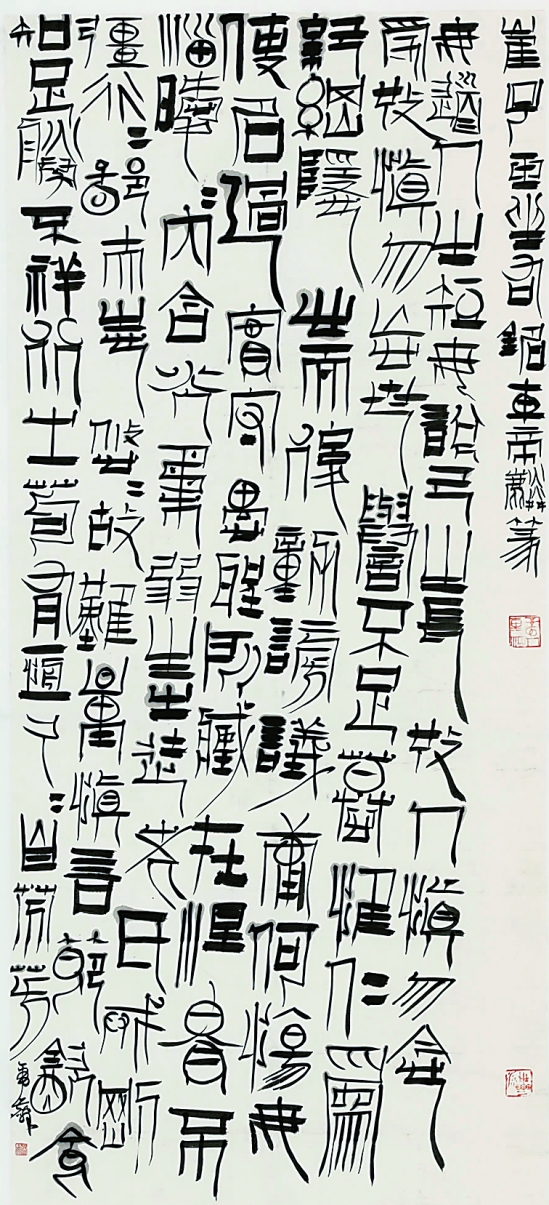 崔子玉座右銘
無道人之短無說己之長施人慎勿念
受施慎勿忘世譽不足慕惟仁為
紀綱隱心而後動謗議庸何傷無
使名過實守愚聖所臧在涅貴不
淄曖〻內含光柔弱生之徒老氏誡剛
彊行〻鄙夫志悠〻故難量慎言節飲食
知足勝不祥行之苟有恆久〻自芬芳